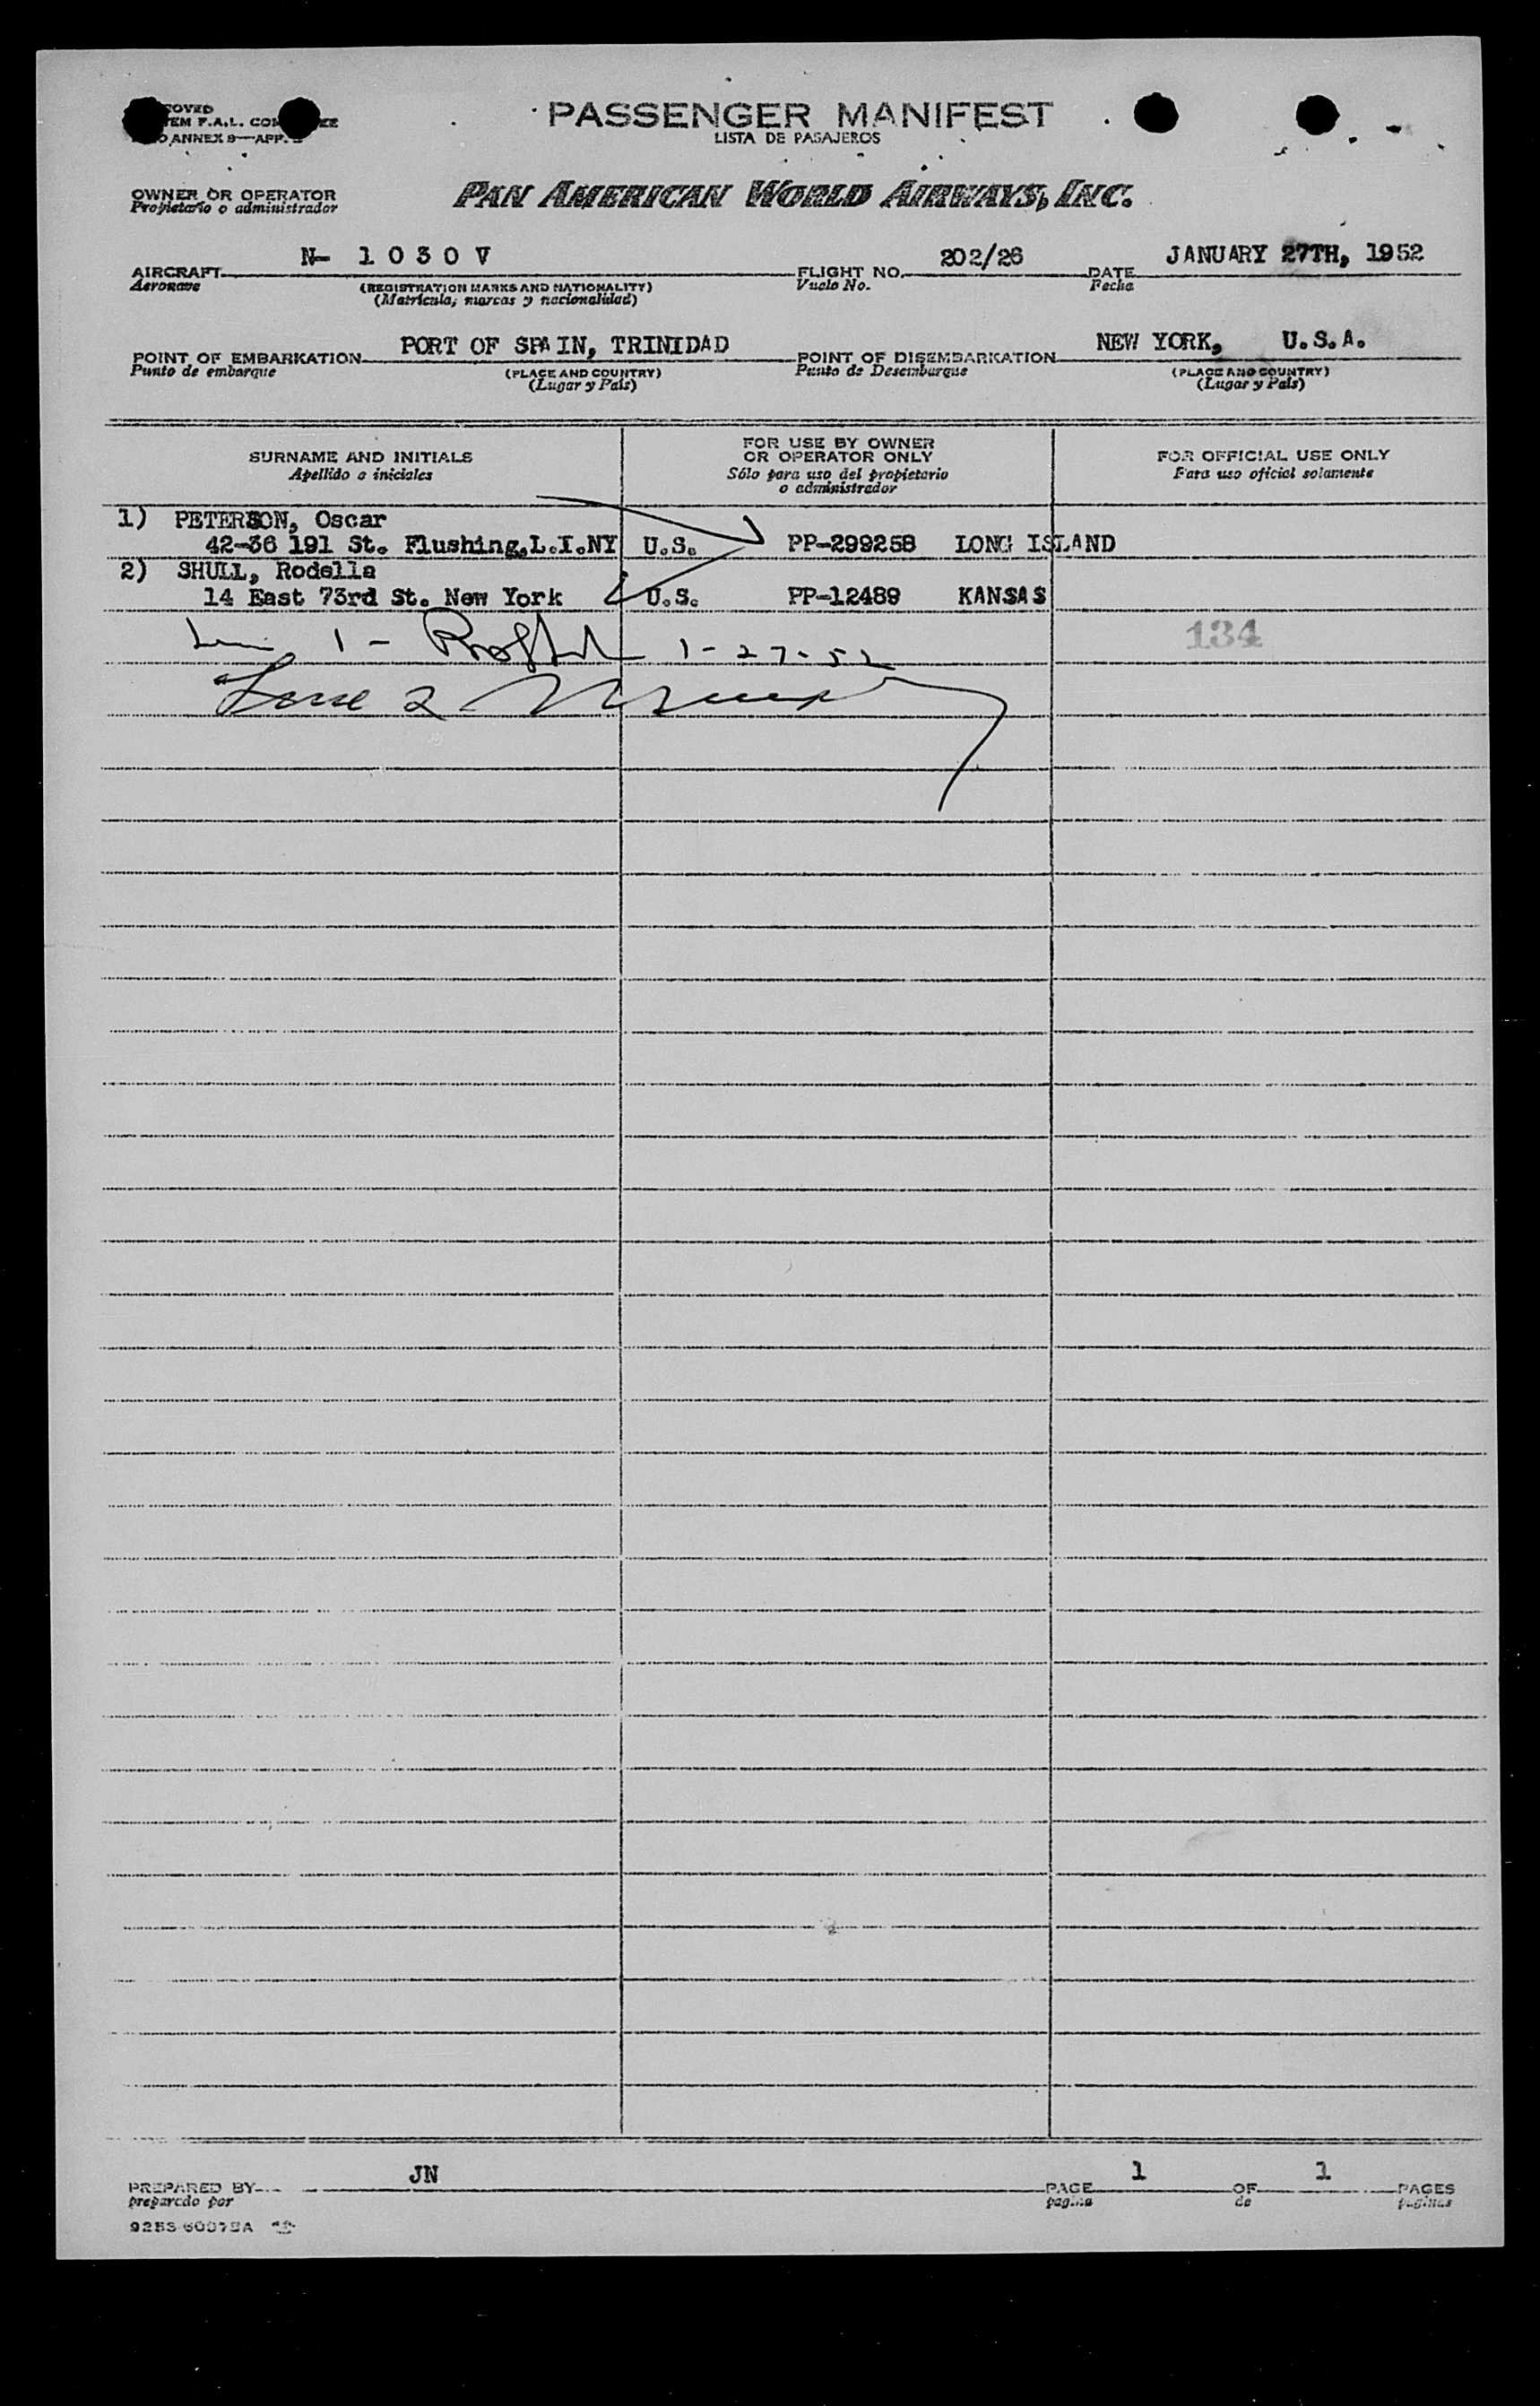 PASSENGER MANIFEST
LISTA DE PASAJEROS
ANNEX 9—APP.
OWNER OR OPERATOR
Propietario o administrador
PAN AMERICAN WORLD AIRWAYS, INC.
AIRCRAFT N- 1 0 3 0 V FLIGHT NO. 202/26 DATE JANUARY 27TH, 1952
Aeronave (REGISTRATION MARKS AND NATIONALITY) Vuelo No. Fecha
(Matricula, marcas y nacionalidad)
POINT OF EMBARKATION PORT OF SPAIN, TRINIDAD POINT OF DISEMBARKATION NEW YORK, U.S.A.
Punto de embarque (PLACE AND COUNTRY) Punto de Desembarque (PLACE AND COUNTRY)
(Lugar y País) (Lugar y País)
SURNAME AND INITIALS FOR USE BY OWNER OR OPERATOR ONLY FOR OFFICIAL USE ONLY
Apellido o iniciales Sólo para uso del propietario o administrador Para uso oficial solamente
1) PETERSON, Oscar
42-36 191 St. Flushing,L.I.NY U.S. PP-299258 LONG ISLAND
2) SHULL, Rodella
14 East 73rd St. New York U.S. PP-12489 KANSAS
1 - 1-27-52 134
2
PREPARED BY JN PAGE 1 OF 1 PAGES
preparado por pagina de paginas